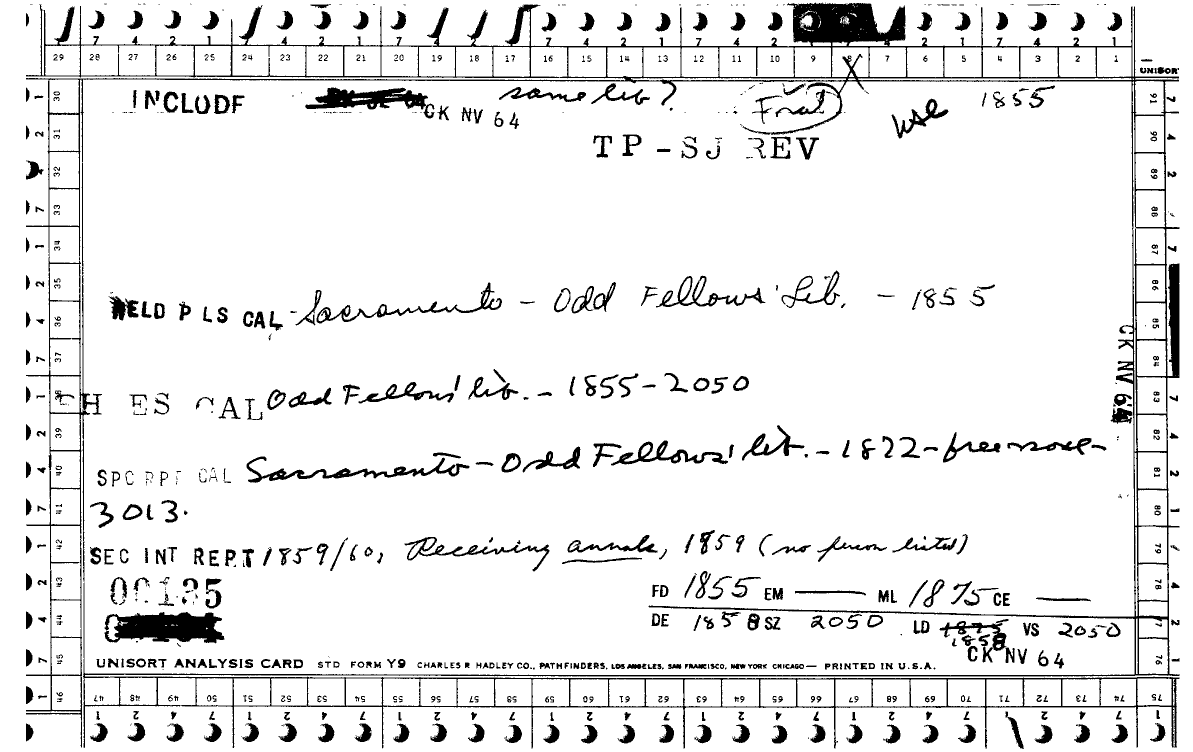 7 4 2 1 7 4 2 1 7 4 2 1 7 4 2 1 7 4 2 1 7 4 2 1
29 28 27 26 25 24 23 22 21 20 19 18 17 16 15 14 13 12 11 10 9 8 7 6 5 4 3 2 1
UNISORT
INCLUDF CK NV 64 same lib? Frat use 1855
TP-SJ REV
HELD PLS CAL - Sacramento - Odd Fellows' Lib. - 1855
CK NV 64
ES CAL Odd Fellows' lib. - 1855-2050
SPC RPT CAL Sacramento - Odd Fellows' lib. - 1822 -
3013.
SEC INT REPT 1859/60, Receiving annals, 1859 (no person listed)
00135
FD 1855 EM — ML 1875 CE —
DE 1858 SZ 2050 LD 1875 1858 VS 2050
CK NV 64
UNISORT ANALYSIS CARD STD FORM Y9 CHARLES R HADLEY CO., PATHFINDERS, LOS ANGELES, SAN FRANCISCO, NEW YORK CHICAGO — PRINTED IN U.S.A.
30 31 32 33 34 35 36 37 38 39 40 41 42 43 44 45 46
91 90 89 88 87 86 85 84 83 82 81 80 79 78 77 76 75
47 48 49 50 51 52 53 54 55 56 57 58 59 60 61 62 63 64 65 66 67 68 69 70 71 72 73 74